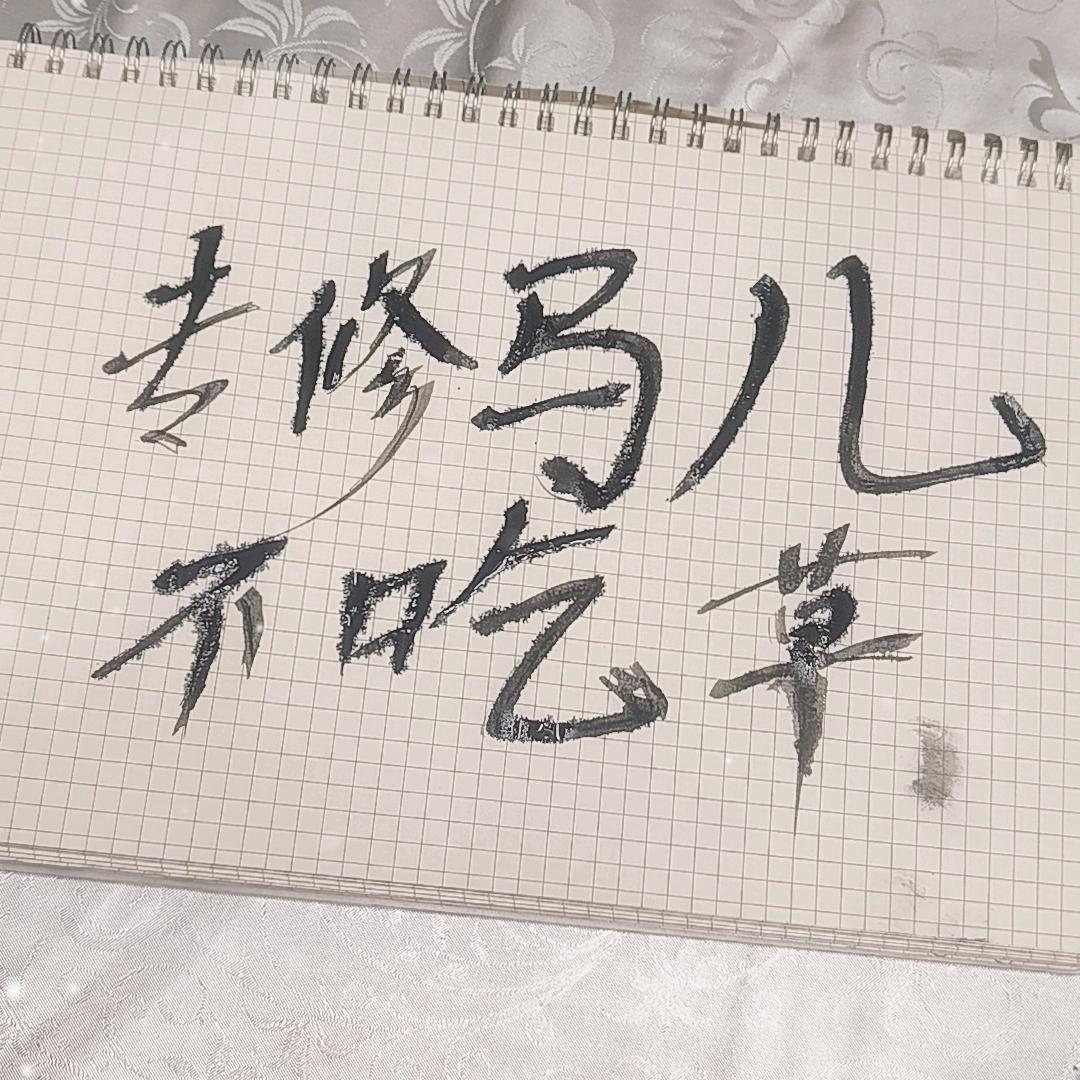 去修马儿
不吃草